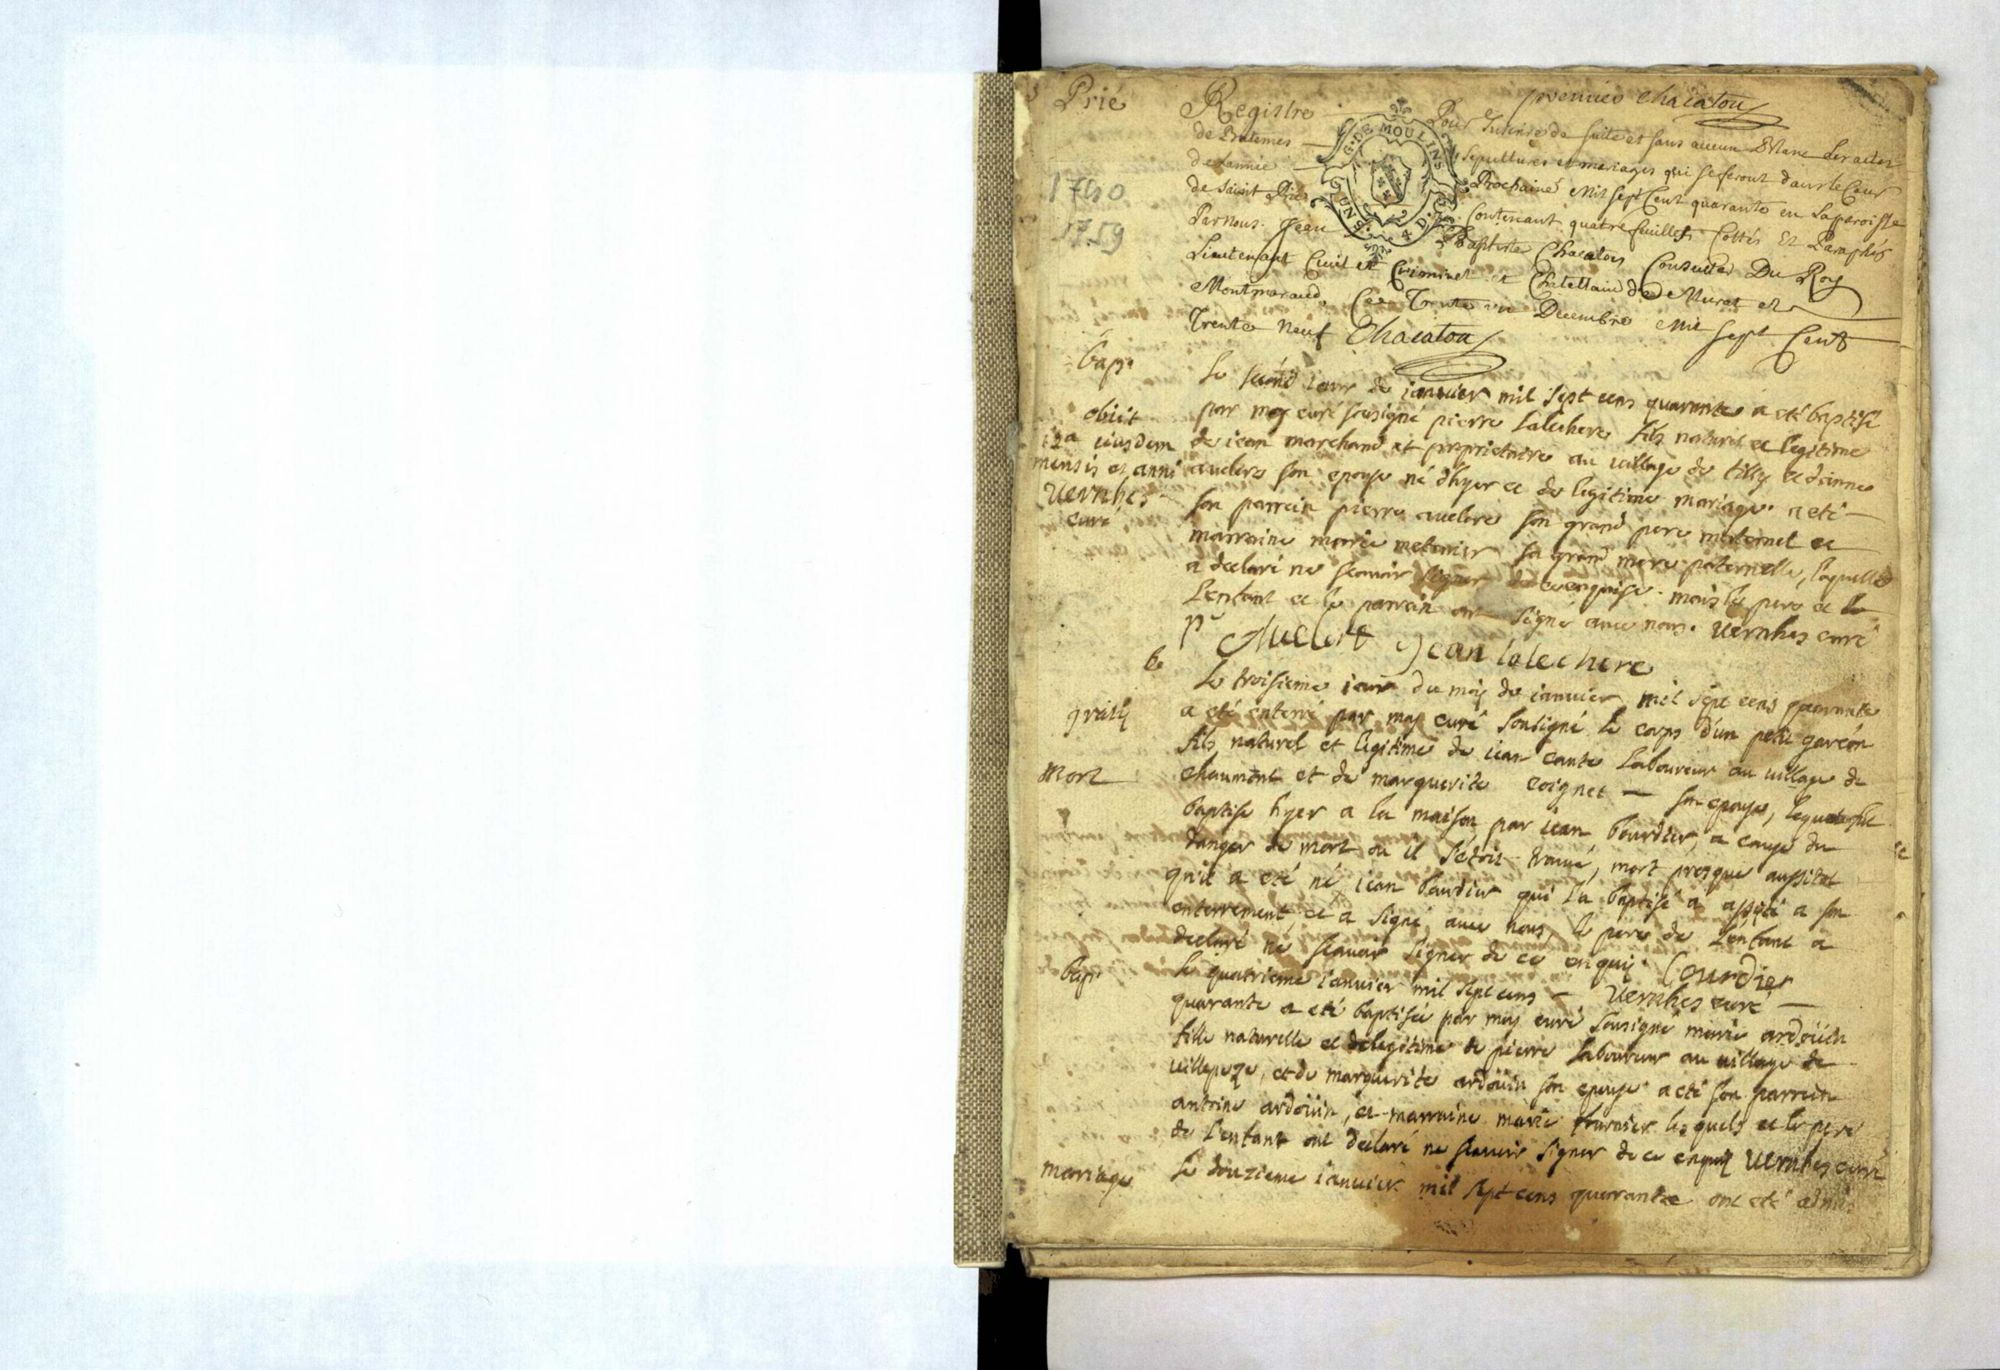 Prié
premier Chacaton
Registre Pour Inserer de suite et sans aucun Blanc Les actes
de Batemes sepultures et mariages qui se feront dans le Cour
de Lannée Prochaine Mil sept Cent quarante en La paroisse
de Saint Prié Contenant quatre feuilles Cottés Et Paraphés
Par nous Jean Baptiste Chacaton Conseiller Du Roy
Lieutenant Civil et Criminel et Chatellain de Murat et
Montmaraud, Ce Trente un Decembre Mil sept Cent
Trente neuf Chacaton
G. DE MOULINS
1740
1759
bap.
Le second iour de ianvier mil sept cens quarante a eté baptisé
par moy curé sousigné pierre Lalechere fils naturel et legitime
de iean marchand et proprietaire au village de tilly et d'anne
auclere son epouse né d'hyer et de legitime mariage a eté
son parrein pierre auclere son grand pere maternel et
marraine marie metenier sa grand mere paternelle, laquelle
a declaré ne scavoir signer de ce enquise. mais le pere de
L'enfant et le parrein ont signé avec nous. Vernhes curé
obiit
12a eiusdem
mensis et anni
Vernhes
curé
pr Auclert Jean lalechere
gratis
mort
Le troisieme iour du moy de ianvier mil sept cens quarante
a eté enterré par moy curé sousigné le corps d'un petit garçon
fils naturel et legitime de iean cante Laboureur au village de
chaumont et de marguerite coignet son epouse, lequel fut
baptisé hyer a la maison par iean bourdier, a cause du
danger de mort ou il setoit trouvé, mort presque aussitot
qu'il a eté né iean bourdier qui l'a baptisé a assisté a son
enterrement, et a signé avec nous, le pere de L'enfant a
declaré ne scavoir signer de ce enquis. bourdier
Vernhes curé
bap.
Le quatrieme ianvier mil sept cens
quarante a eté baptisée par moy curé sousigné marie ardoüin
fille naturelle et de legitime de pierre Laboureur au village de
et de marguerite ardoüin son epouse a eté son parrein
antoine ardoüin, et marraine marie fournier lesquels et le pere
de L'enfant ont declaré ne scavoir signer de ce enquis Vernhes curé
mariage
Le douzieme ianvier mil sept cens quarante ont eté admi